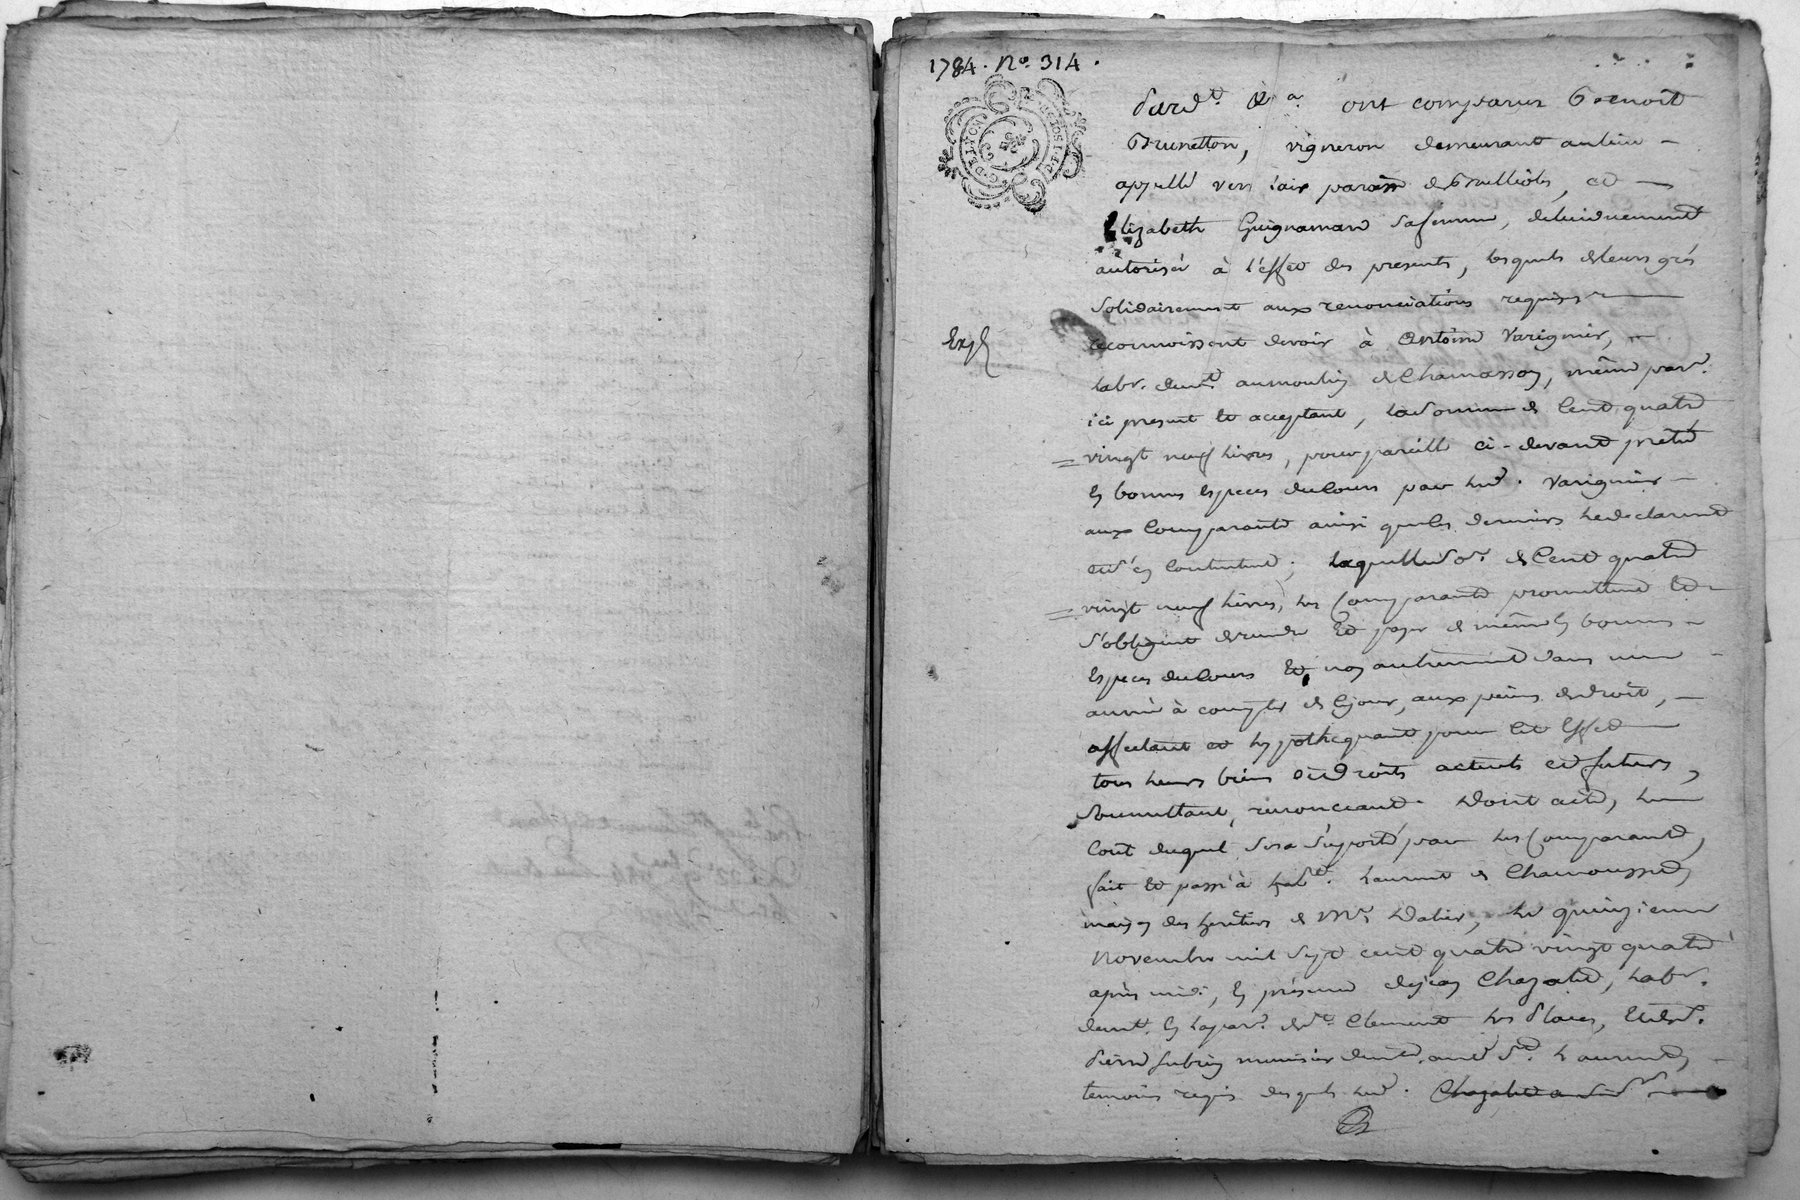 1784. No. 314.
G. DE LYON
Pard.t &a. ont comparus Benoît
Brunetton, vigneron demeurant au lieu
appellé vers l'air paroisse de Brulliolles, et
Elizabeth Guignamard sa femme, de lui duement
autorisée à l'effet des presentes, lesquels de leurs grés
solidairement aux renonciations requises
Exp
reconnoissent devoir à Antoine Varignier,
labr. demt. au moulin de Chamasson, même parr.
ici present et acceptant, la somme de Cent quatre
vingt neuf livres, pour pareille ci-devant prêtée
en bonnes especes du Cours par led. Varignier
aux Comparants ainsi que les derniers le declarent
et s'en Contentent; laquelle so.e de Cent quatre
vingt neuf livres, les Comparants promettent et
s'obligent de rendre et payer de même en bonnes
Especes du Cours et non autrement dans une
année à compter de ce jour, aux peines de droit,
affectant et hypothequant pour cet Effet
tous leurs biens et droits actuels et futurs,
soumettant, renonceant. Dont acte, le
Cout duquel sera suporté par les Comparants,
fait et passé à St. Laurent de Chamousset,
maison des heritiers de Mr. Dalier, le quinzieme
Novembre mil sept cent quatre vingt quatre
après midi, en présence de Jean Chazalet, labr.
demt. en la parr. de St. Clement les Places, et de
Pierre Subrin menuisier demt. aud. St. Laurent,
temoins requis desquels led. Chazalet a